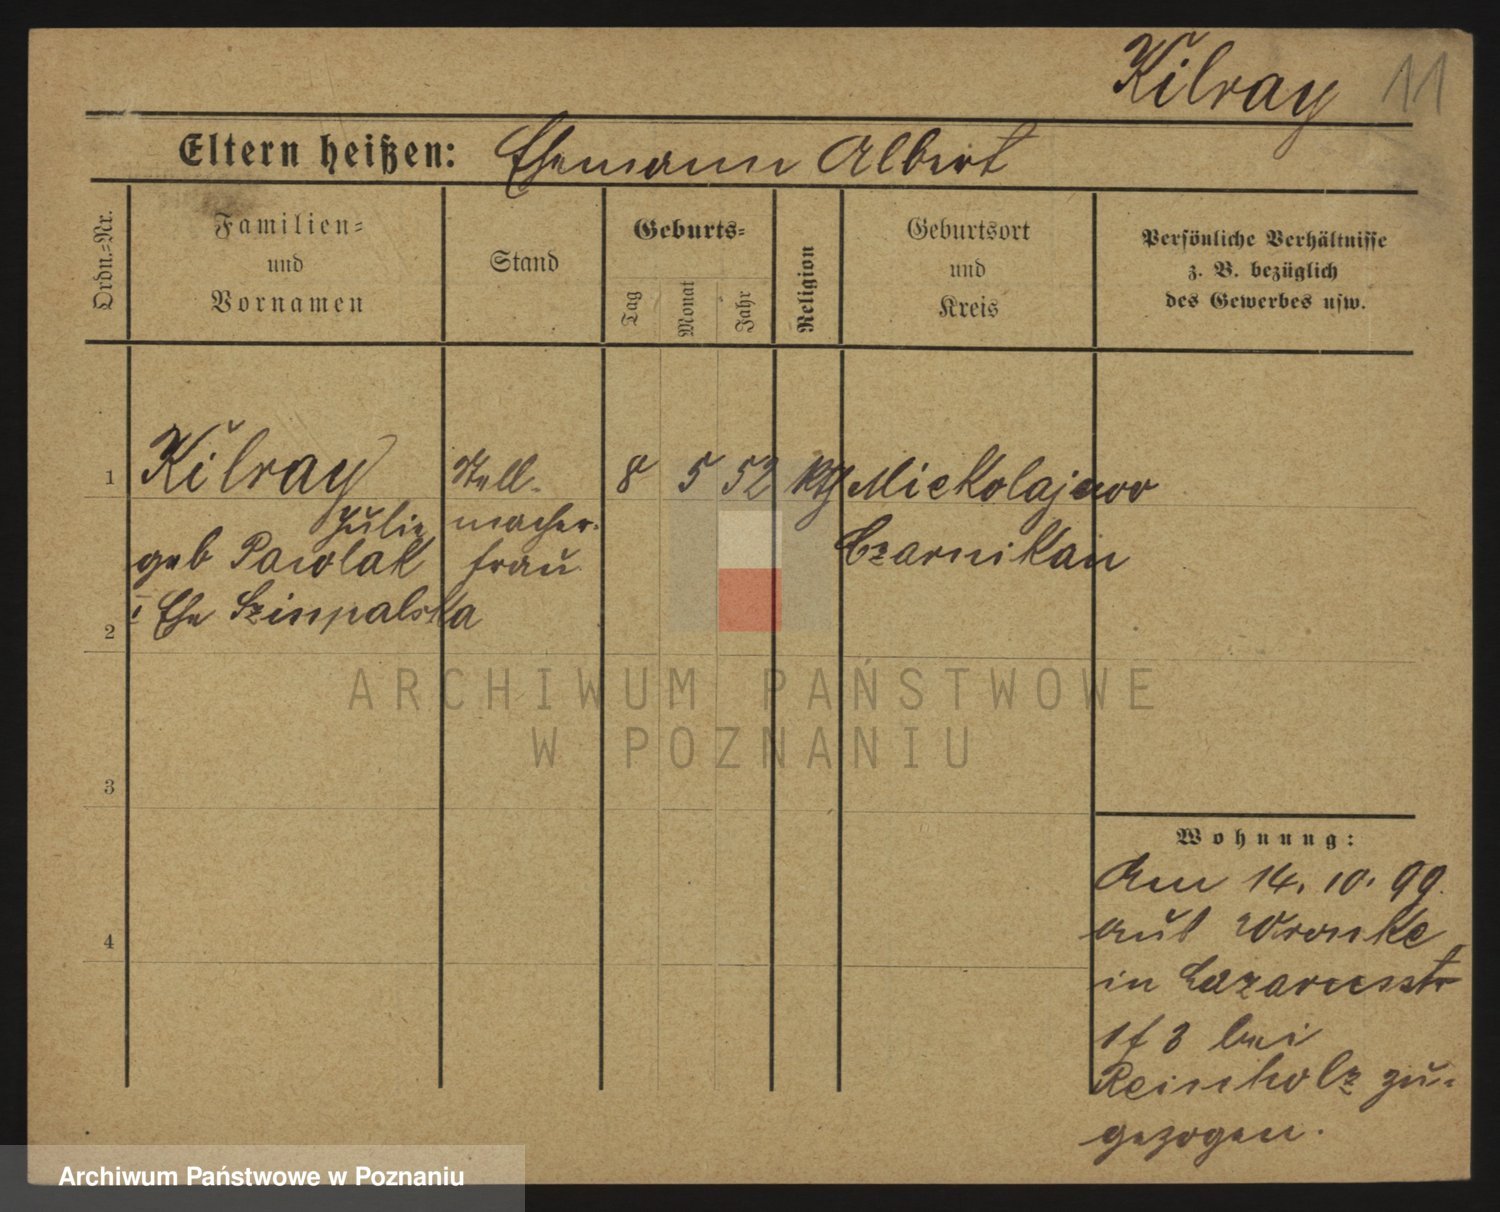 Kilray 11
Eltern heißen: Ehemann Albert
Ordn.=Nr.
Familien=
und
Vornamen
Stand
Geburts=
Tag
Monat
Jahr
Religion
Geburtsort
und
Kreis
Persönliche Verhältnisse
z. B. bezüglich
des Gewerbes usw.
1 Kilray Stell- 8 5 52 kth Mickolajewo
Julie macher-
geb Pawlak frau Czarnikau
I Ehe
2
3
4
Wohnung:
Am 14. 10. 99.
aus Wronke
in Lazarusstr
bei
Reinholz zu-
gezogen.
ARCHIWUM PAŃSTWOWE
W POZNANIU
Archiwum Państwowe w Poznaniu